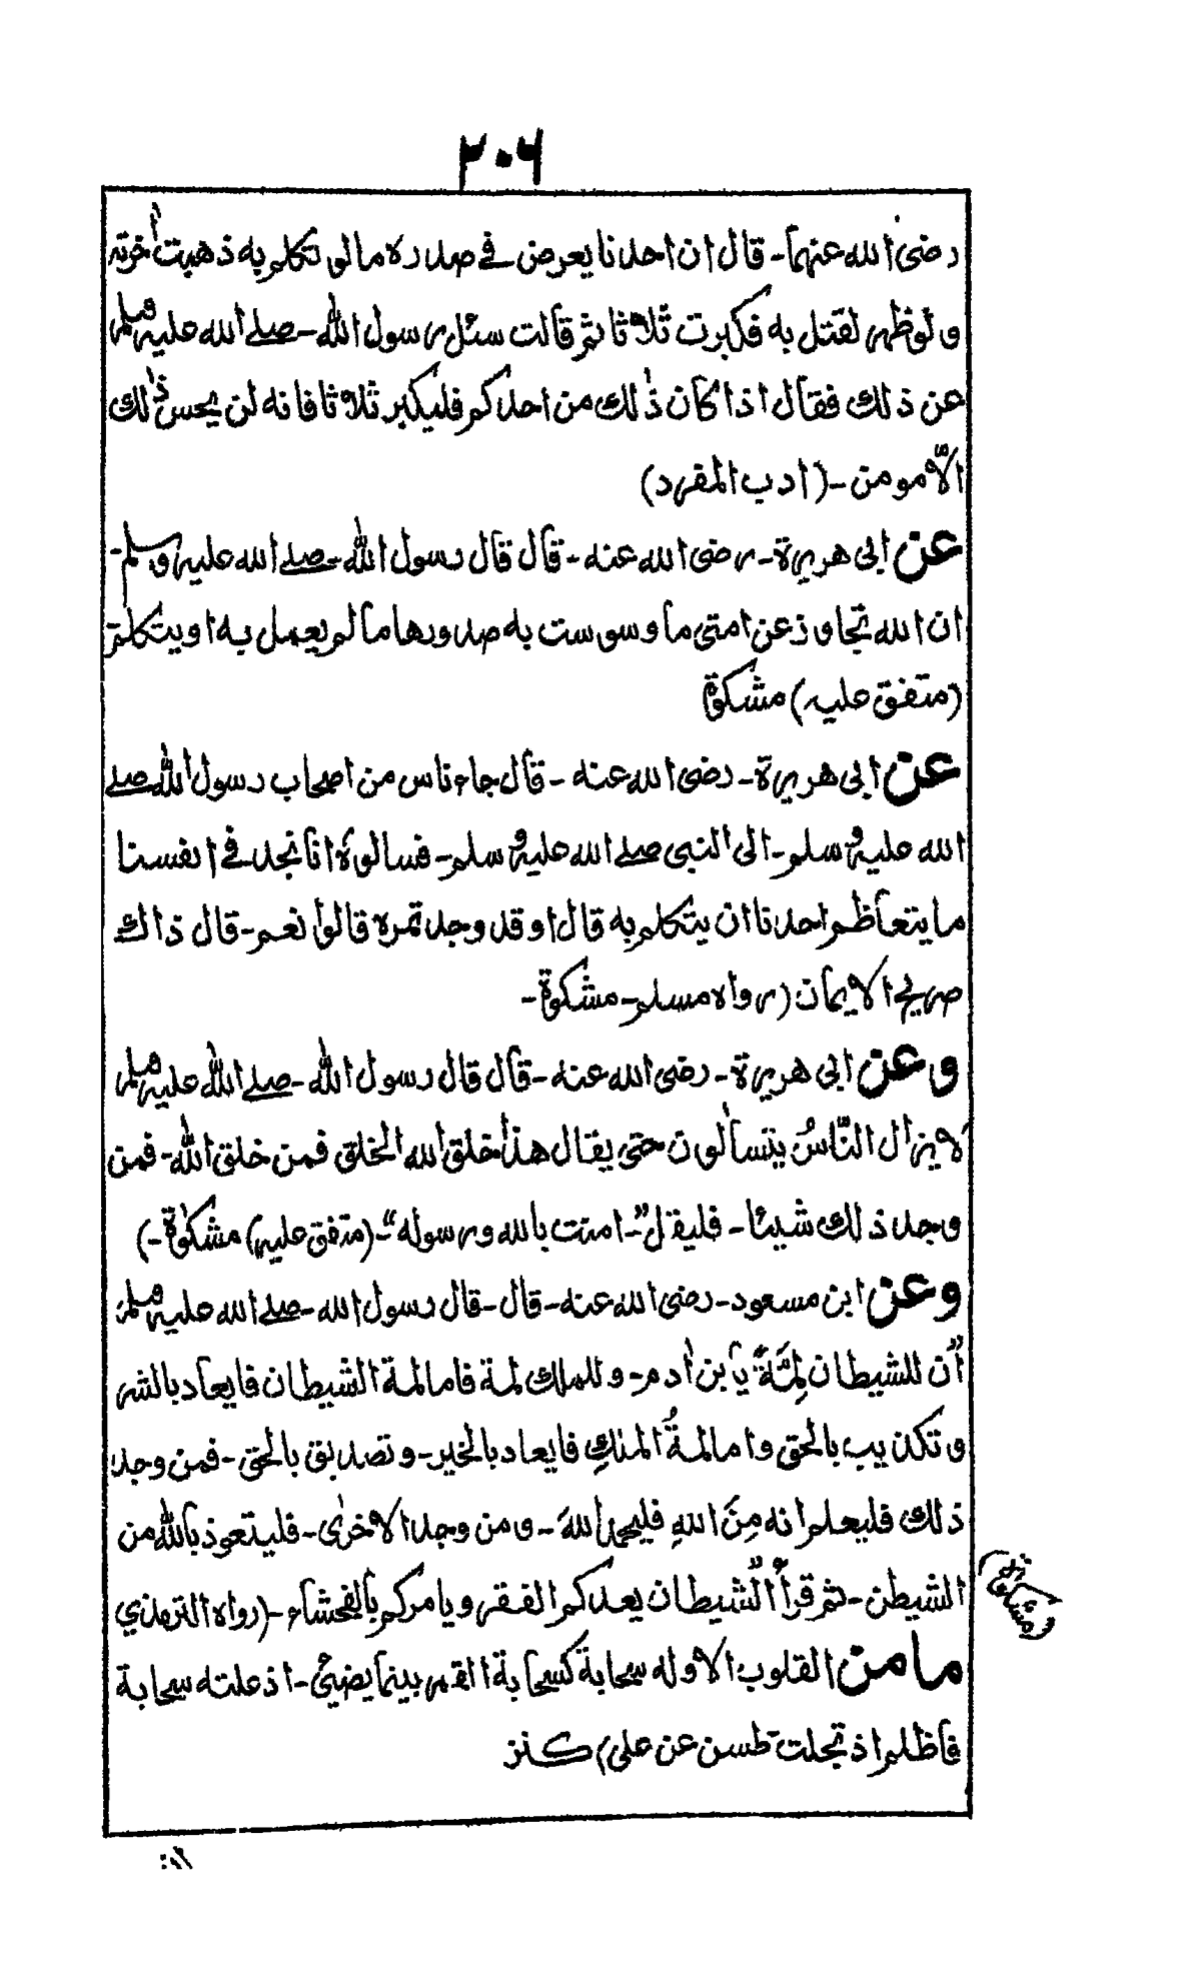 ٢٠٦
رضی الله عنهما۔ قال ان احدنا یعرض فے صدره مالو تکلم به ذهبت اٰخرته
ولو ظهر لقتل به فکبرت ثلاثا ثم قالت سئل رسول الله۔ صلے الله علیه وسلم
عن ذلك فقال اذا کان ذٰلك من احدکم فلیکبر ثلاثا فانه لن یحس ذٰلك
الّا مومن۔ (ادب المفرد)
عن ابی هریرة۔ رضی الله عنه۔ قال قال رسول الله۔ صلے الله علیه وسلم۔
ان الله تجاوز عن امتی ما وسوست به صدورها مالم یعمل به او یتکلم
(متفق علیه) مشکوة
عن ابی هریرة۔ رضی الله عنه۔ قال جاء ناس من اصحاب رسول الله صلے
الله علیه وسلم۔ الی النبی صلے الله علیه وسلم۔ فسالوه انا نجد فے انفسنا
ما یتعاظم احدنا ان یتکلم به قال او قد وجدتمره قالوا نعم۔ قال ذالك
صریح الایمان (رواه مسلم۔ مشکوة۔
وعن ابی هریرة۔ رضی الله عنه۔ قال قال رسول الله۔ صلے الله علیه وسلم
لا یزال النّاسُ یتسألون حتی یقال هذا خلق الله الخلق فمن خلق الله۔ فمن
وجد ذلك شیئا۔ فلیقل”۔ امنت بالله ورسوله“۔ (متفق علیه) مشکوٰة۔)
وعن ابن مسعود۔ رضی الله عنه۔ قال۔ قال رسول الله۔ صلے الله علیه وسلم:
اّن للشیطان لِمَّةً یابن اٰدم۔ وللملك لمة فاما لمة الشیطان فایعاد بالشر
وتکذیب بالحق واما لمةُ الملكِ فایعاد بالخیر۔ وتصدیق بالحق۔ فمن وجد
ذلك فلیعلم انه مِنَ اللهِ فلیحمد اللهَ۔ ومن وجد الاخرٰی۔ فلیتعوذ بالله من
الشیطن۔ ثم قرأ الّشیطان یعدکم الفقر ویامرکم بالفحشاء۔ (رواه الترمذی
مشکوة)
مامن القلوب الا وله سحابة کسحابة القمر بینما یضیئ۔ اذ علته سحابة
فاظلم اذ تجلت طسن عن علی) کنز